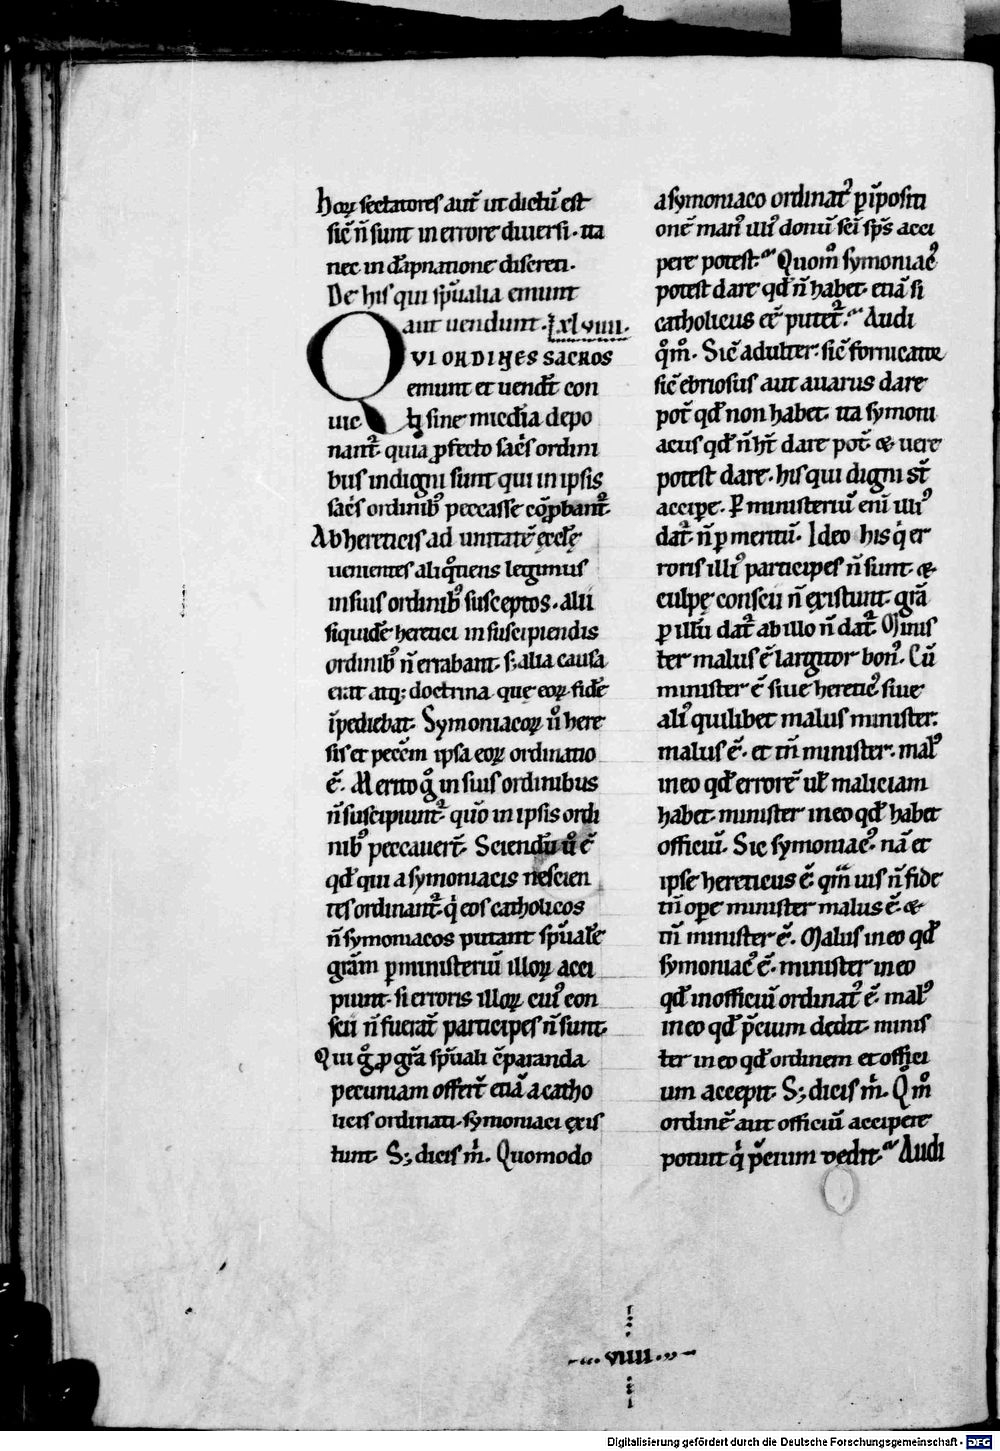 hoꝝ sectatores aut̄ ut dictū est
sic̄ n̄ sunt in errore diuersi. ita
nec in dāpnatione discreti.
De his qui sp̄ualia emunt
aut uendunt. lxlviiii.
QVI ORDINES SACROS
emunt et uendt̄ con
uic ti sine mīcdia depo
nant᷑ quia ꝓfecto sac̄s ordini
bus indigni sunt qui in ipsis
sac̄s ordinibꝰ peccasse cōꝓbant᷑.
Ab hereticis ad unitatē ęccl̄ę
uenientes aliq̄tiens legimus
in suis ordinibꝰ susceptos. alii
siquidē heretici in suscipiendis
ordinibꝰ n̄ errabant. s; alia causa
erat atq; doctrina que eoꝝ fidē
īpediebat. Symoniacoꝝ ū̊ here
sis et pecc̄m ipsa eoꝝ ordinatio
ē. Merito g̊ in suis ordinibus
n̄ suscipiunt᷑ quō in ipsis ordi
nibꝰ peccauer̄t. Sciendū ū̊ ē
qd̄ qui a symoniacis nescien
tes ordinant᷑. q̇ eos catholicos
n̄ symoniacos putant sp̄ualē
grām ꝑ ministeriū illoꝝ acci
piunt. si erroris illoꝝ cuiꝰ con
scii n̄ fuerāt participes n̄ sunt.
Qui g̊ ꝓ grā sp̄uali cōparanda
pecuniam offer̄t etiā a catho
licis ordinati. symoniaci exis
tunt. S; dicis ṁ. Quomodo
a symoniaco ordinat᷑ ꝑ īpositi
onē manꝰ illiꝰ donū sc̄i sp̄s acci
pere potest. Quom̊ symoniacꝰ
potest dare qd̄ n̄ habet. etiā si
catholicus eē putet᷑. Audi
q̊m̊. Sic̄ adulter. sic̄ fornicator
sic̄ ebriosus aut auarus dare
pot̄ qd̄ non habet. ita symoni
acus qd̄ n̄ h̄t dare pot̄. & uere
potest dare. his qui digni st̄
accipe. Ꝑ ministeriū enī illiꝰ
dat᷑. n̄ ꝑ meritū. Ideo his q̇ er
roris illiꝰ participes n̄ sunt. &
culpę conscii n̄ existunt. grā
ꝑ illū dat᷑ ab illo n̄ dat᷑. Minis
ter malus ē largitor bonꝰ. Cū
minister ē siue hereticꝰ siue
aliꝰ quilibet malus minister.
malus ē. et tn̄ minister. malꝰ
in eo qd̄ errorē ul̄ maliciam
habet. minister in eo qd̄ habet
officiū. Sic symoniacꝰ. nā et
ipse hereticus ē. qm̄uis n̄ fide
tn̄ ope minister malus ē. &
tn̄ minister ē. Malus in eo qd̄
symoniacꝰ ē. minister in eo
qd̄ in officiū ordinat᷑ ē. malꝰ
in eo qd̄ p̄cium dedit. minis
ter in eo qd̄ ordinem et offici
um accepit. S; dicis ṁ. Q̊m̊
ordinē aut officiū accipere
potuit q̇ p̄cium dedit. Audi
viiii
Digitalisierung gefördert durch die Deutsche Forschungsgemeinschaft - DFG